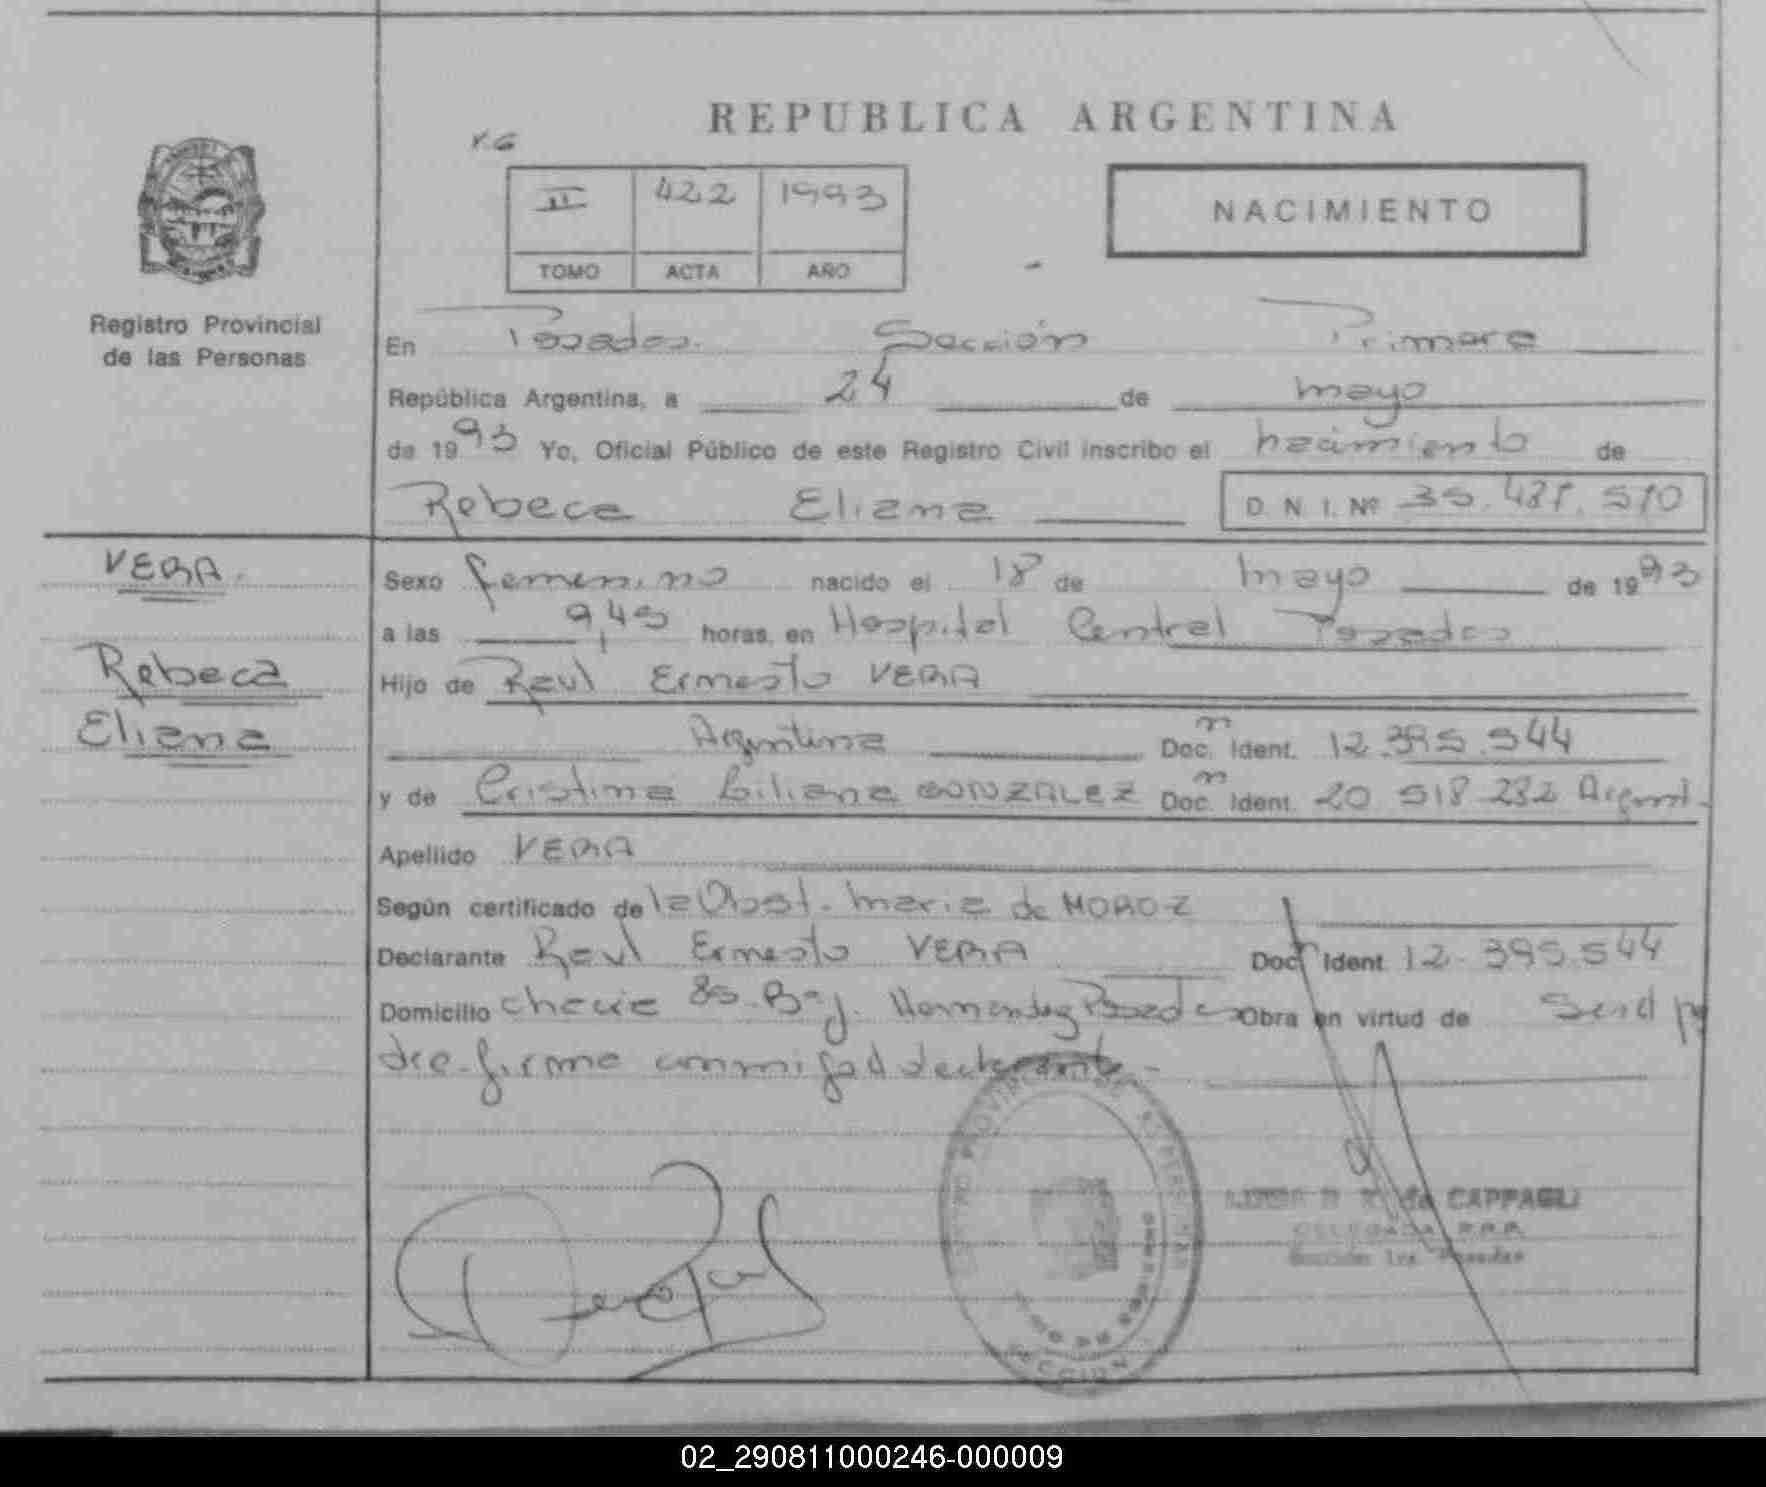 REPUBLICA ARGENTINA
II 422 1993
TOMO ACTA AÑO
NACIMIENTO
Registro Provincial
de las Personas
En Posadas. Sección Primera
República Argentina, a 24 de mayo
de 1993 Yo, Oficial Público de este Registro Civil inscribo el nacimiento de
Rebeca Eliana D. N. I. Nº
VERA.
Rebeca
Eliana
Sexo femenino nacido el 18 de mayo de 1993
a las 9,45 horas, en Hospital Central Posadas
Hijo de Raul Ernesto VERA
Argentina Doc. Ident. 12.395.544
y de Cristina Liliana GONZALEZ Doc. Ident. 20 518 232 Argent.
Apellido VERA
Según certificado de la Obst. Maria de MOROZ
Declarante Raul Ernesto VERA Doc Ident. 12.395.544
Domicilio 85 Hernandez Posadas Obra en virtud de
firma conmigo el declarante.
de CAPPAGLI
DELEGADA R.P.P.
Sección 1ra. Posadas
SECCION
02_290811000246-000009